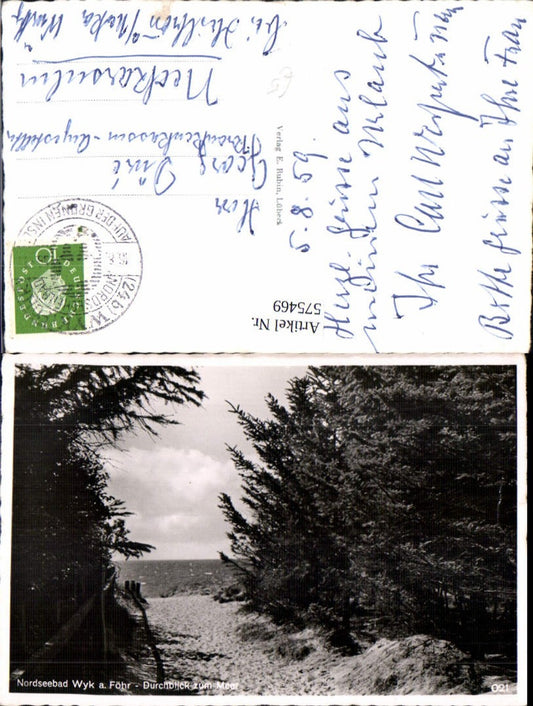 5. 8. 59.
Herzl. Grüsse aus
meinem Urlaub
Ihr Carl
Bitte grüsse an Ihre Frau
Verlag E. Rubin, Lübeck
Artikel Nr.
575469
Herr
Georg
Krankenkassen-Angestellter
Neckarsulm
bei Heilbronn a/Neckar Württ
DEUTSCHE BUNDESPOST
10
(24b) WYK
NORDSEE
AUF DER GRÜNEN INSEL
Nordseebad Wyk a. Föhr - Durchblick zum Meer
021